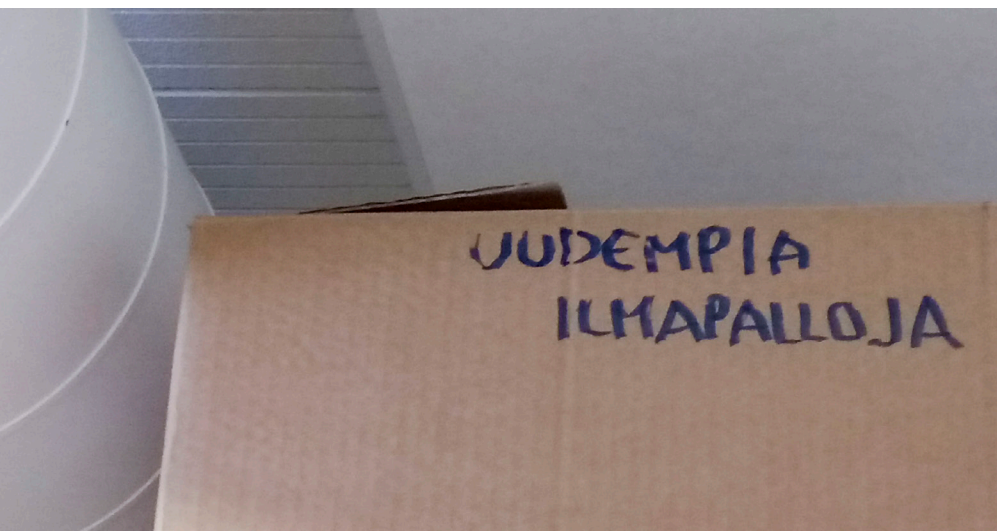 UUDEMPIA
ILMAPALLOJA